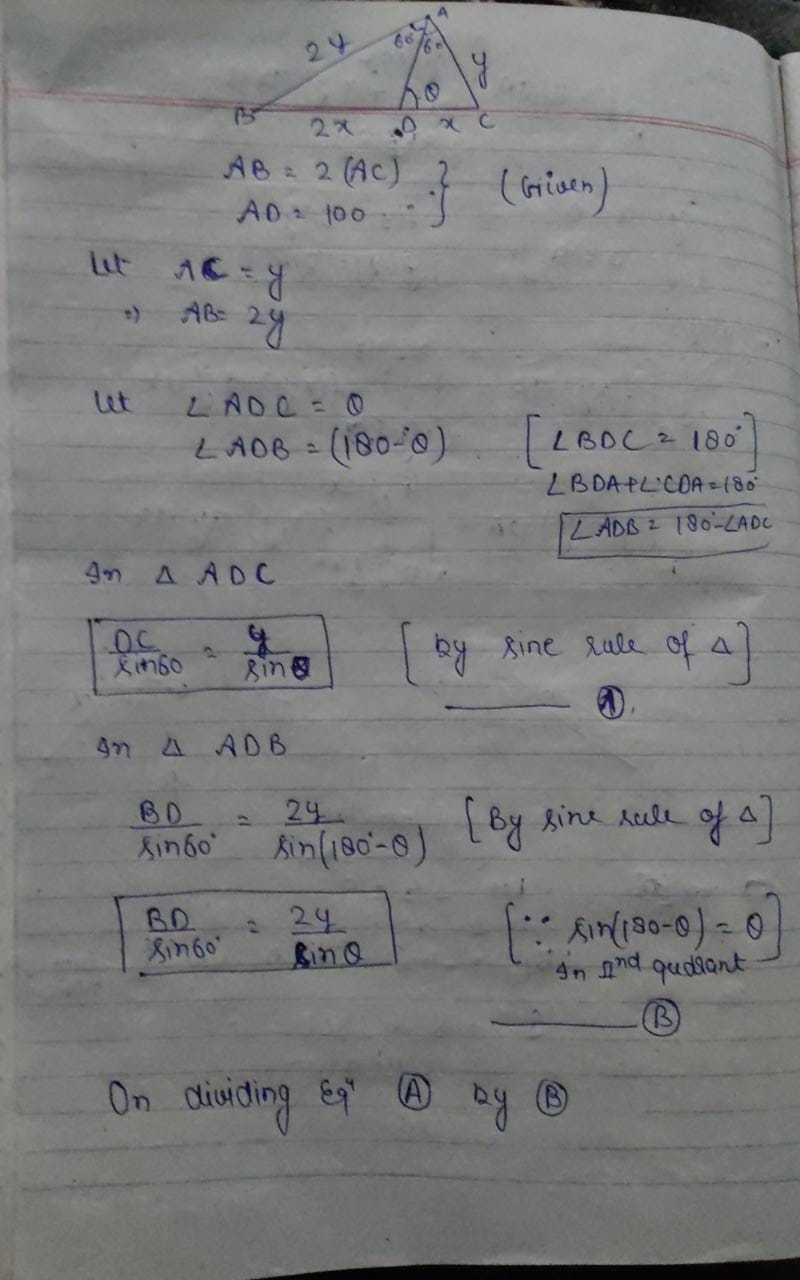 A
2y 60° 60 y
θ
B 2x D x C
AB = 2 (AC) } (Given)
AD = 100
let AC = y
=) AB= 2y
let ∠ADC = θ
∠ADB = (180-θ) [∠BDC = 180°]
∠BDA+∠CDA=180°
∠ADB = 180°-∠ADC
In Δ ADC
DC/sin60 = y/sinθ [by sine rule of Δ]
A
In Δ ADB
BD/sin60° = 2y/sin(180°-θ) [By sine rule of Δ]
BD/sin60° = 2y/sinθ [∵ sin(180-θ) = θ]
In IInd qudrant
B
On dividing Eqn A by B